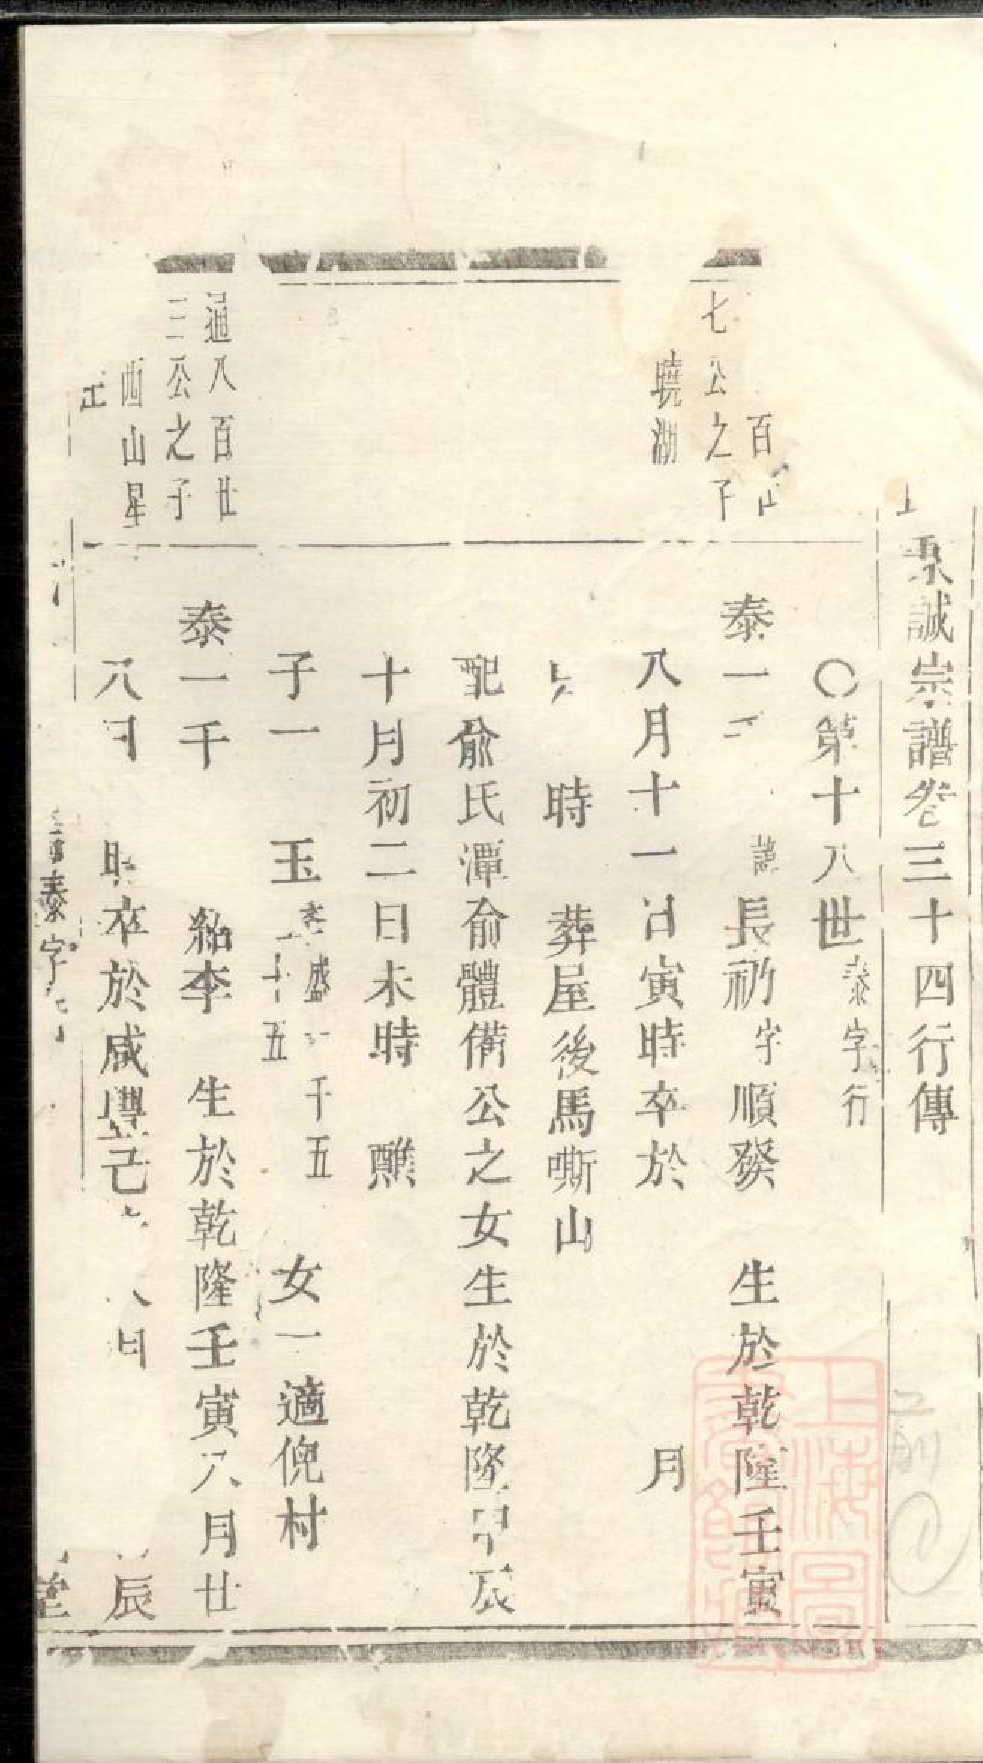 誠宗譜卷三十四行傳
〇第十八世泰字行
百
七公之子
曉湖
泰一 諱長礽字順發 生於乾隆壬寅
八月十一日寅時卒於 月
時 葬屋後馬嘶山
配俞氏潭俞體備公之女生於乾隆甲辰
十月初二日未時 醮
子一 玉 盛 千五 十五 女一適倪村
通八百廿
三公之子
酉山星
泰一千 紹李 生於乾隆壬寅八月廿
八日 時卒於咸豐己 八月 辰
泰字
堂
上海圖書館藏